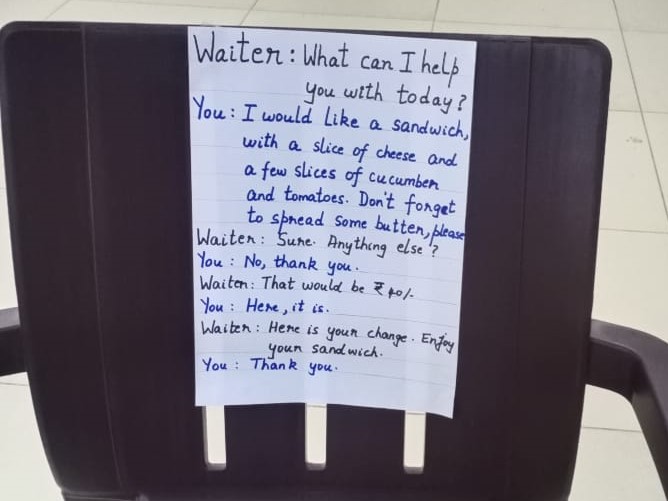 Waiter: What can I help
you with today?
You: I would like a sandwich,
with a slice of cheese and
a few slices of cucumber
and tomatoes. Don't forget
to spread some butter, please
Waiter: Sure. Anything else?
You: No, thank you.
Waiter: That would be ₹ 40/-
You: Here, it is.
Waiter: Here is your change. Enjoy
your sandwich.
You: Thank you.